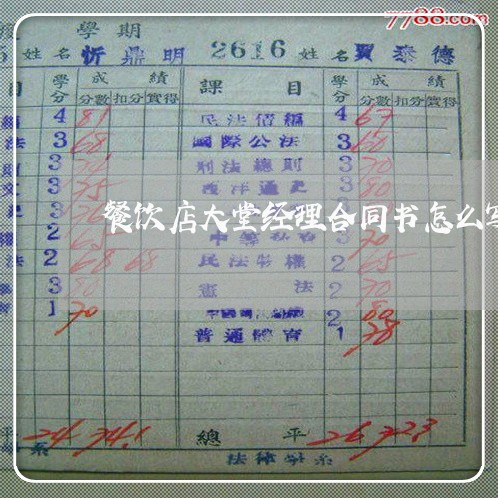 7788.com
學期
5 姓名 忻鼎明 2616 姓名 賈泰德
目 學分 成績 課目 學分 成績
分數 扣分 實得 分數 扣分 實得
4 81 民法債編 4 67
法 3 68 國際公法 3 60
3 刑法總則 3 70
3 75 西洋通史 3 80
餐饮店大堂经理合同书怎么写
2 65 3 70
法 2 68 68 民法物權 2 65
3 80 憲法 2 70
1 70 2 80
普通體育 1 78
平 24 74.1 總平 26 72.3
系 法律學系